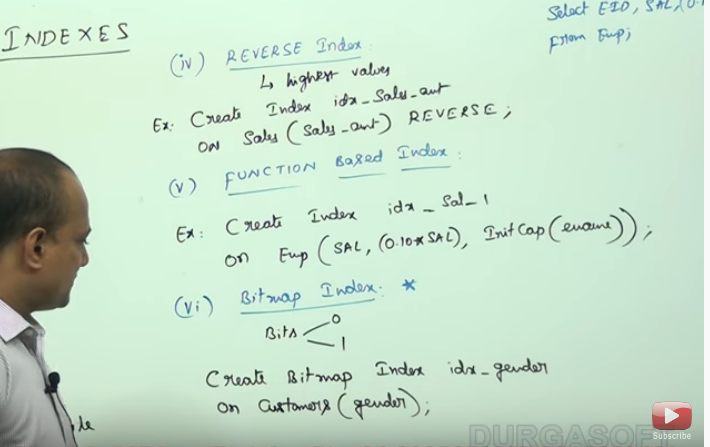 INDEXES
Select EID, SAL, (0.1
From Emp;
(iv) REVERSE Index:
↳ highest values
Ex: Create Index idx_Sales_amt
ON Sales (Sales_amt) REVERSE;
(v) FUNCTION Based Index:
Ex: Create Index idx_Sal_1
on Emp (SAL, (0.10*SAL), InitCap(ename));
(vi) Bitmap Index: *
Bits 0
1
Create Bitmap Index idx_gender
on Customers (gender);
DURGASOF
Subscribe